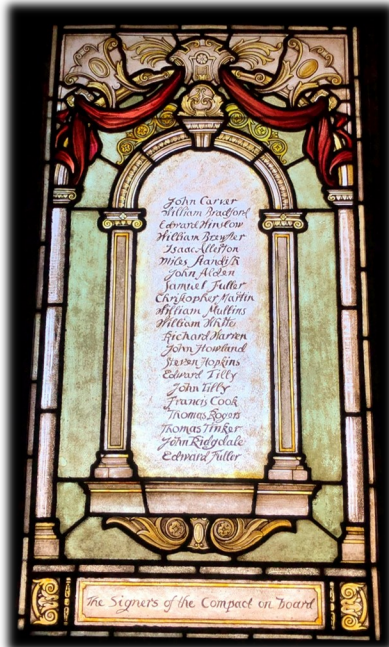 John Carver
William Bradford
Edward Winslow
William Brewster
Isaac Allerton
Miles Standish
John Alden
Samuel Fuller
Christopher Martin
William Mullins
William White
Richard Warren
John Howland
Steven Hopkins
Edward Tilly
John Tilly
Francis Cook
Thomas Rogers
Thomas Tinker
John Ridgdale
Edward Fuller
The Signers of the Compact on board